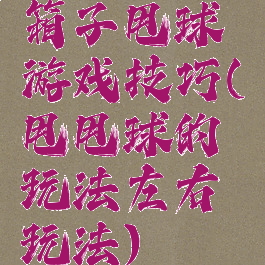 箱子甩球
游戏技巧(
甩甩球的
玩法左右
玩法)